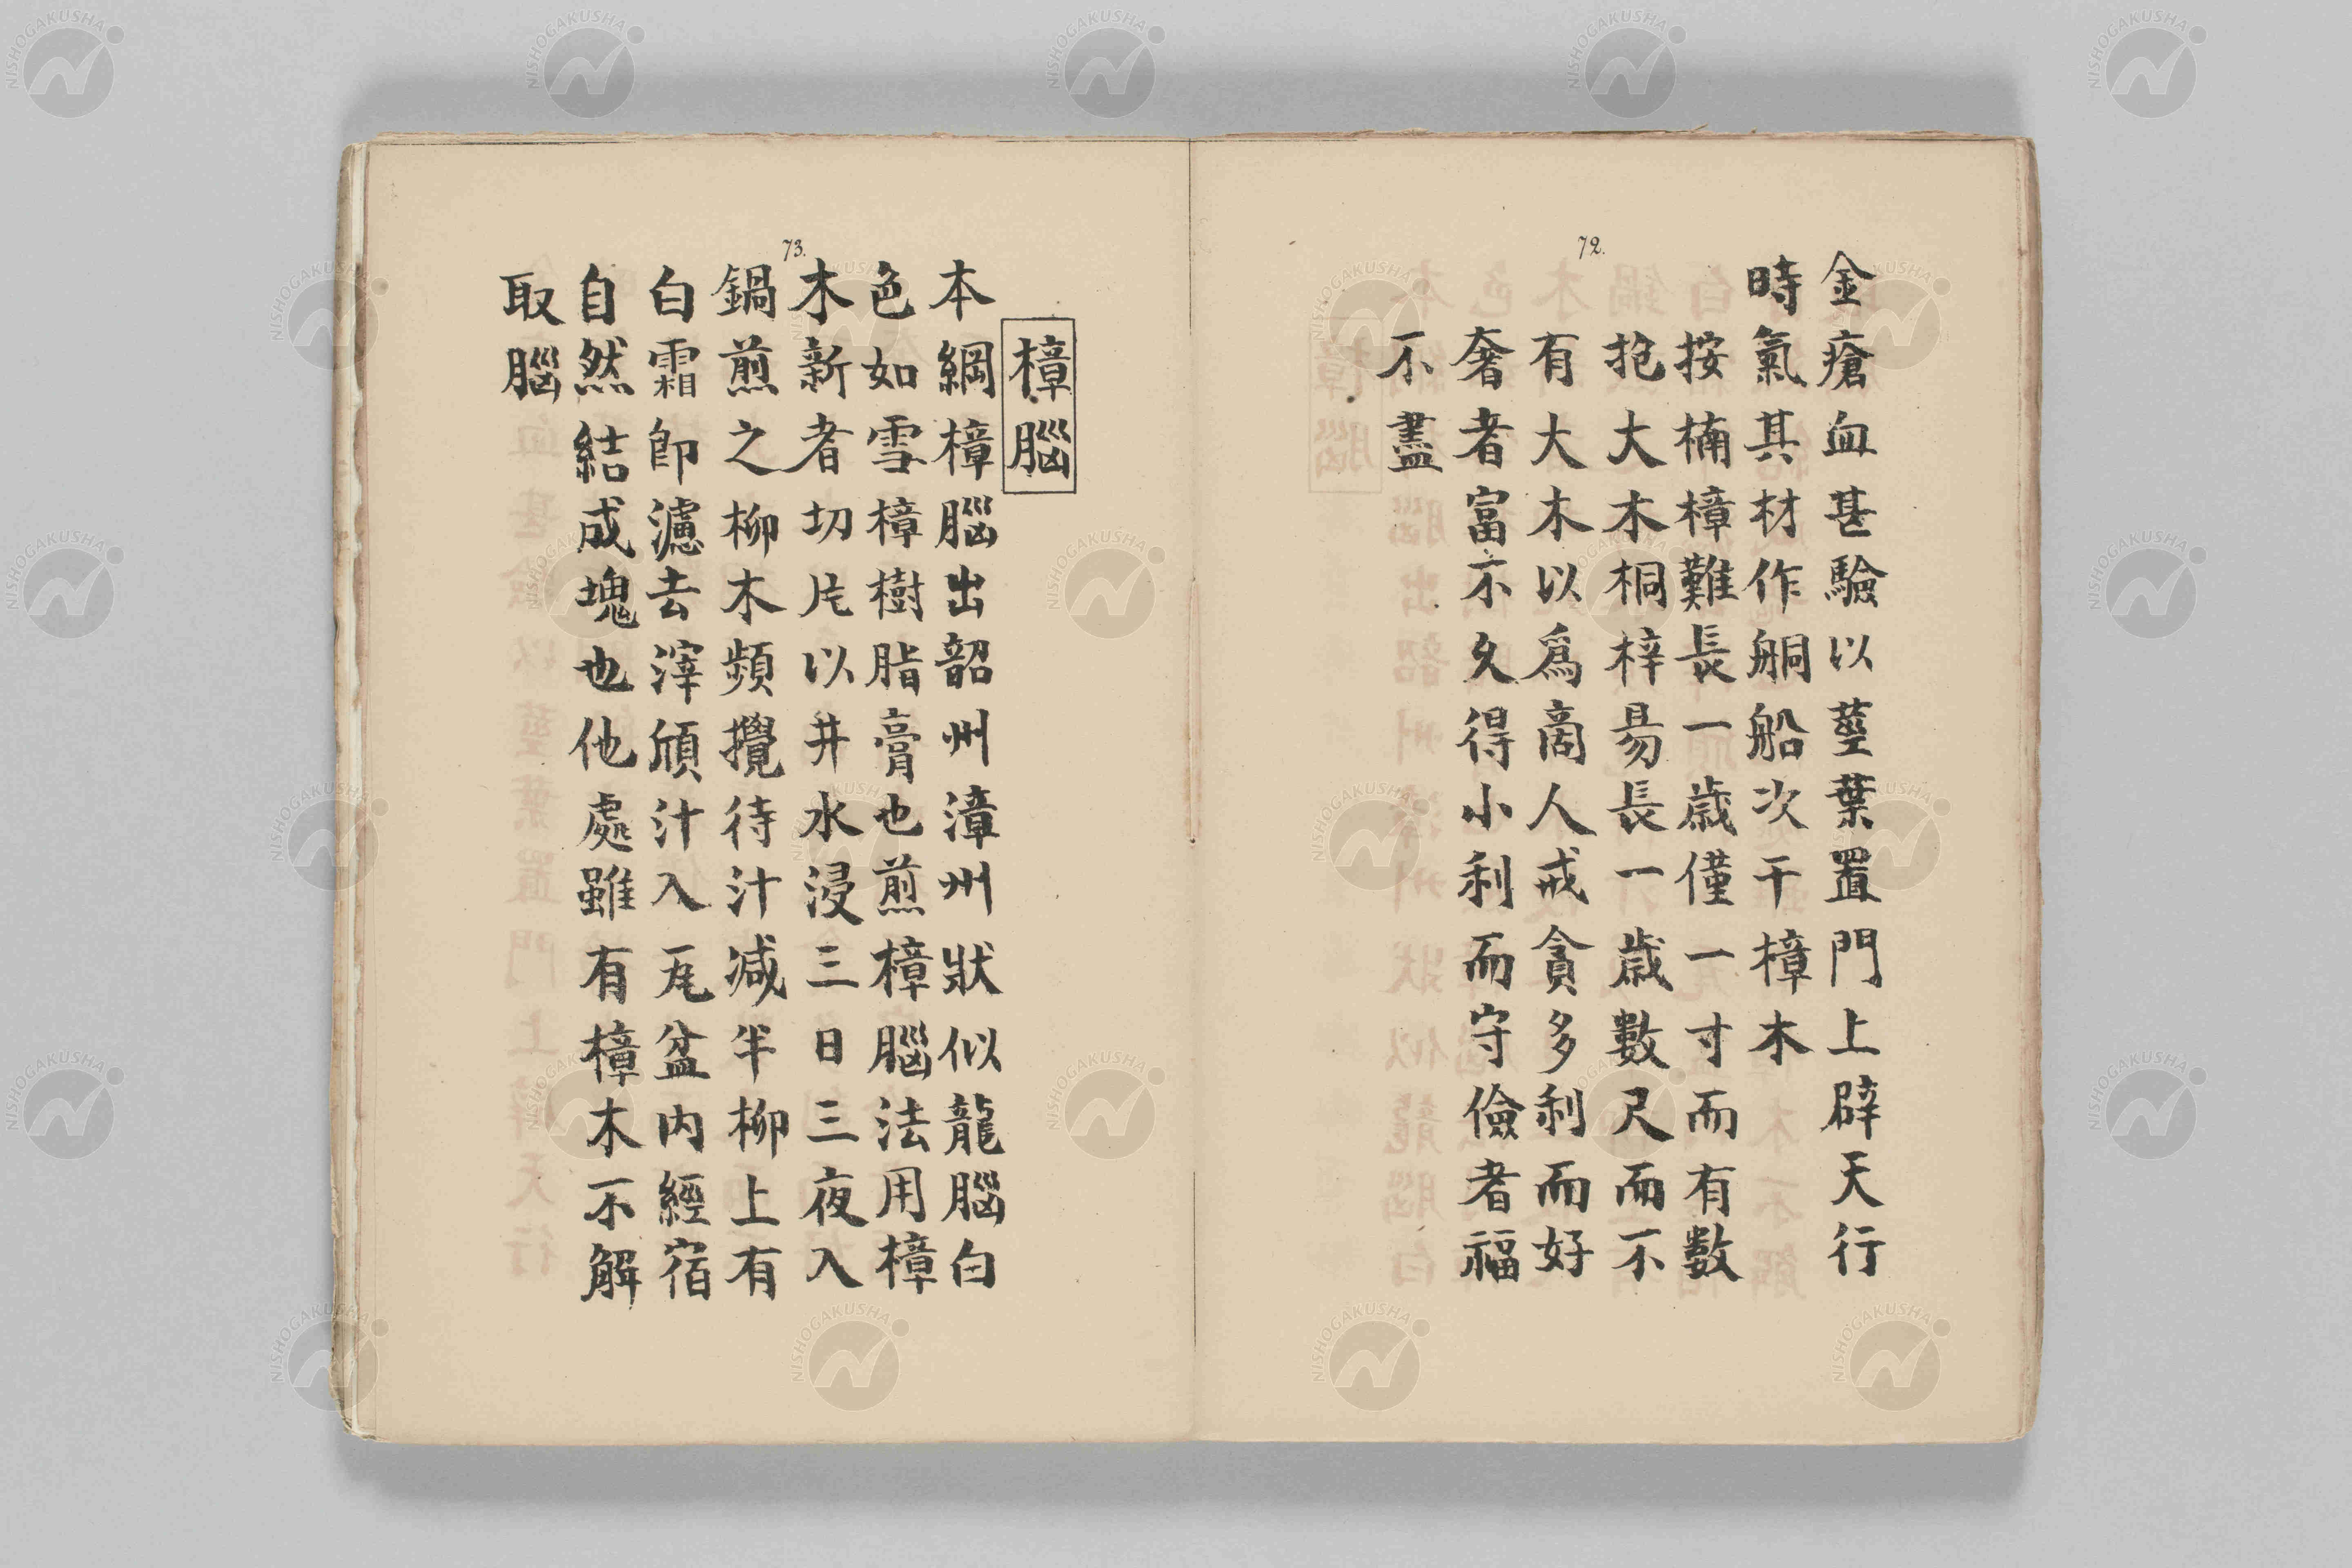 72.
金瘡血甚驗以莖葉置門上辟天行
時氣其材作舸船次于樟木
按楠樟難長一歳僅一寸而有數
抱大木桐梓易長一歳數尺而不
有大木以爲商人戒貪多利而好
奢者富不久得小利而守儉者福
不盡
73.
樟腦
本綱樟腦出韶州漳州狀似龍腦白
色如雪樟樹脂膏也煎樟腦法用樟
木新者切片以井水浸三日三夜入
鍋煎之柳木頻攪待汁減半柳上有
白霜即濾去滓傾汁入瓦盆内經宿
自然結成塊也他處雖有樟木不解
取腦
NISHOGAKUSHA